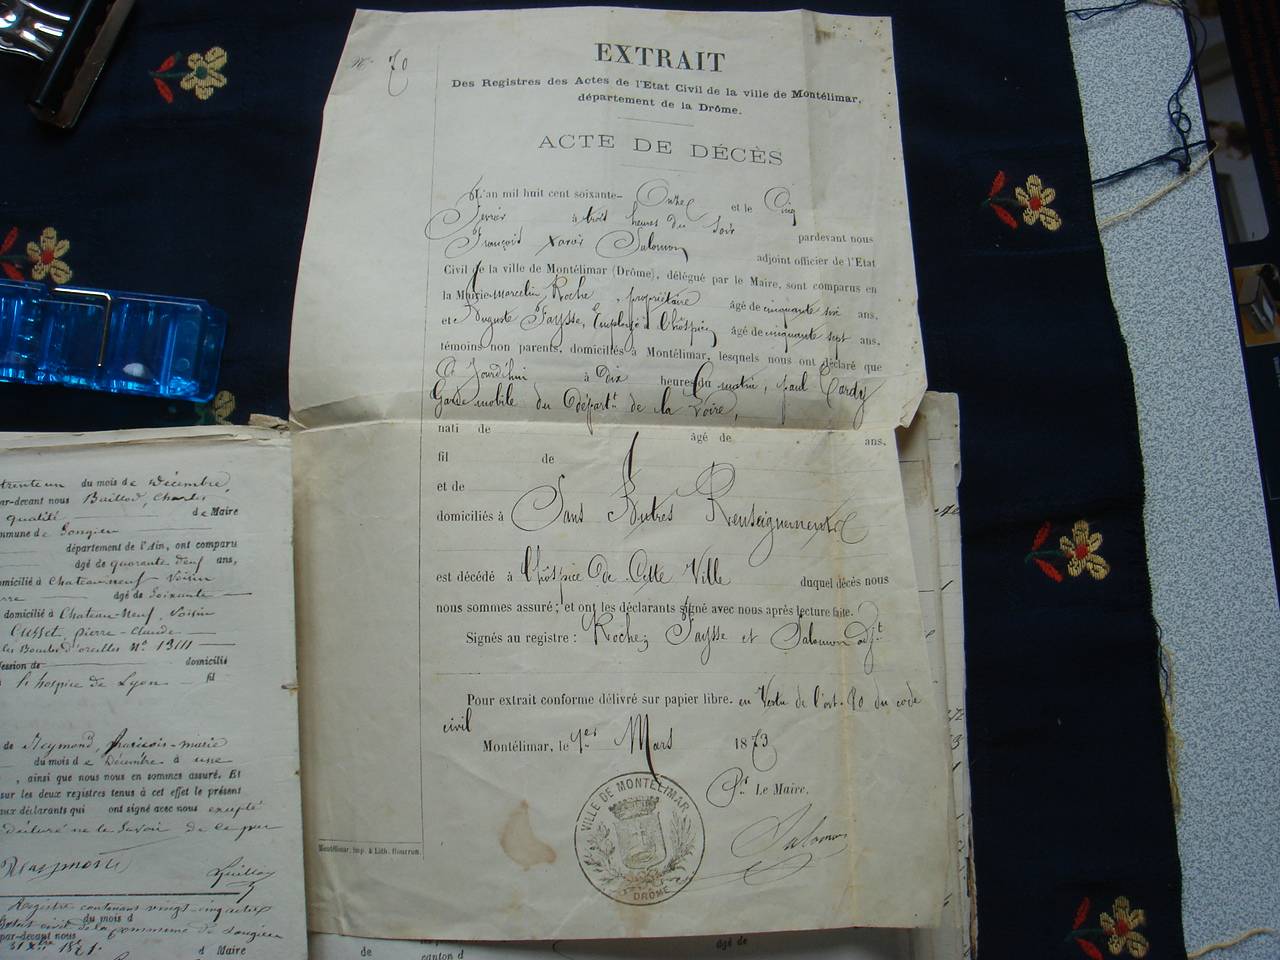 N° 70
EXTRAIT
Des Registres des Actes de l'Etat Civil de la ville de Montélimar,
département de la Drôme.
ACTE DE DÉCÈS
L'an mil huit cent soixante- Onze et le Cinq
fevrier à trois heures du Soir pardevant nous
François Xavier Salomon adjoint officier de l'Etat
Civil de la ville de Montélimar (Drôme), délégué par le Maire, sont comparus en
la Mairie Marcelin Roche, propriétaire âgé de cinquante six ans,
et Auguste Faysse, Employé à l'hôspice âgé de cinquante sept ans,
témoins non parents, domiciliés à Montélimar, lesquels nous ont déclaré que
Ce Jourd'hui à Dix heures du matin, paul Cardy
Garde mobile du Départt de la Loire,
nati de âgé de ans,
fil de
et de
domiciliés à Sans Autres Renseignements
est décédé à l'hôspice De Cette Ville duquel décès nous
nous sommes assuré; et ont les déclarants signé avec nous après lecture faite.
Signés au registre : Roche, Faysse et Salomon adjt
Pour extrait conforme délivré sur papier libre. en Vertu de l'art. 80 du code
civil
Montélimar, le 1er Mars 1873
Pr Le Maire,
Salomon
VILLE DE MONTÉLIMAR
DRÔME
Montélimar, imp. & Lith. Bourron.
trente un du mois de Décembre,
par-devant nous Baillod, Charles
qualité de Maire
commune de Songieu
département de l'Ain, ont comparu
âgé de quarante neuf ans,
domicilié à Chateauneuf Voisin
âgé de Soixante
domicilié à Chateau-Neuf, Voisin
Cusset, pierre-claude
N° 1311
domicilié
l'hospice de Lyon fil
de Reymond, francois-marie
du mois de Décembre à une
, ainsi que nous nous en sommes assuré. Et
sur les deux registres tenus à cet effet le présent
aux déclarants qui ont signé avec nous excepté
déclaré ne le Savoir de ce par
Registre contenant vingt-cinq actes
du mois d
Etat civil de la commune de Songieu
par-devant nous
31 Xbre 1871. d Maire
de canton d âgé de